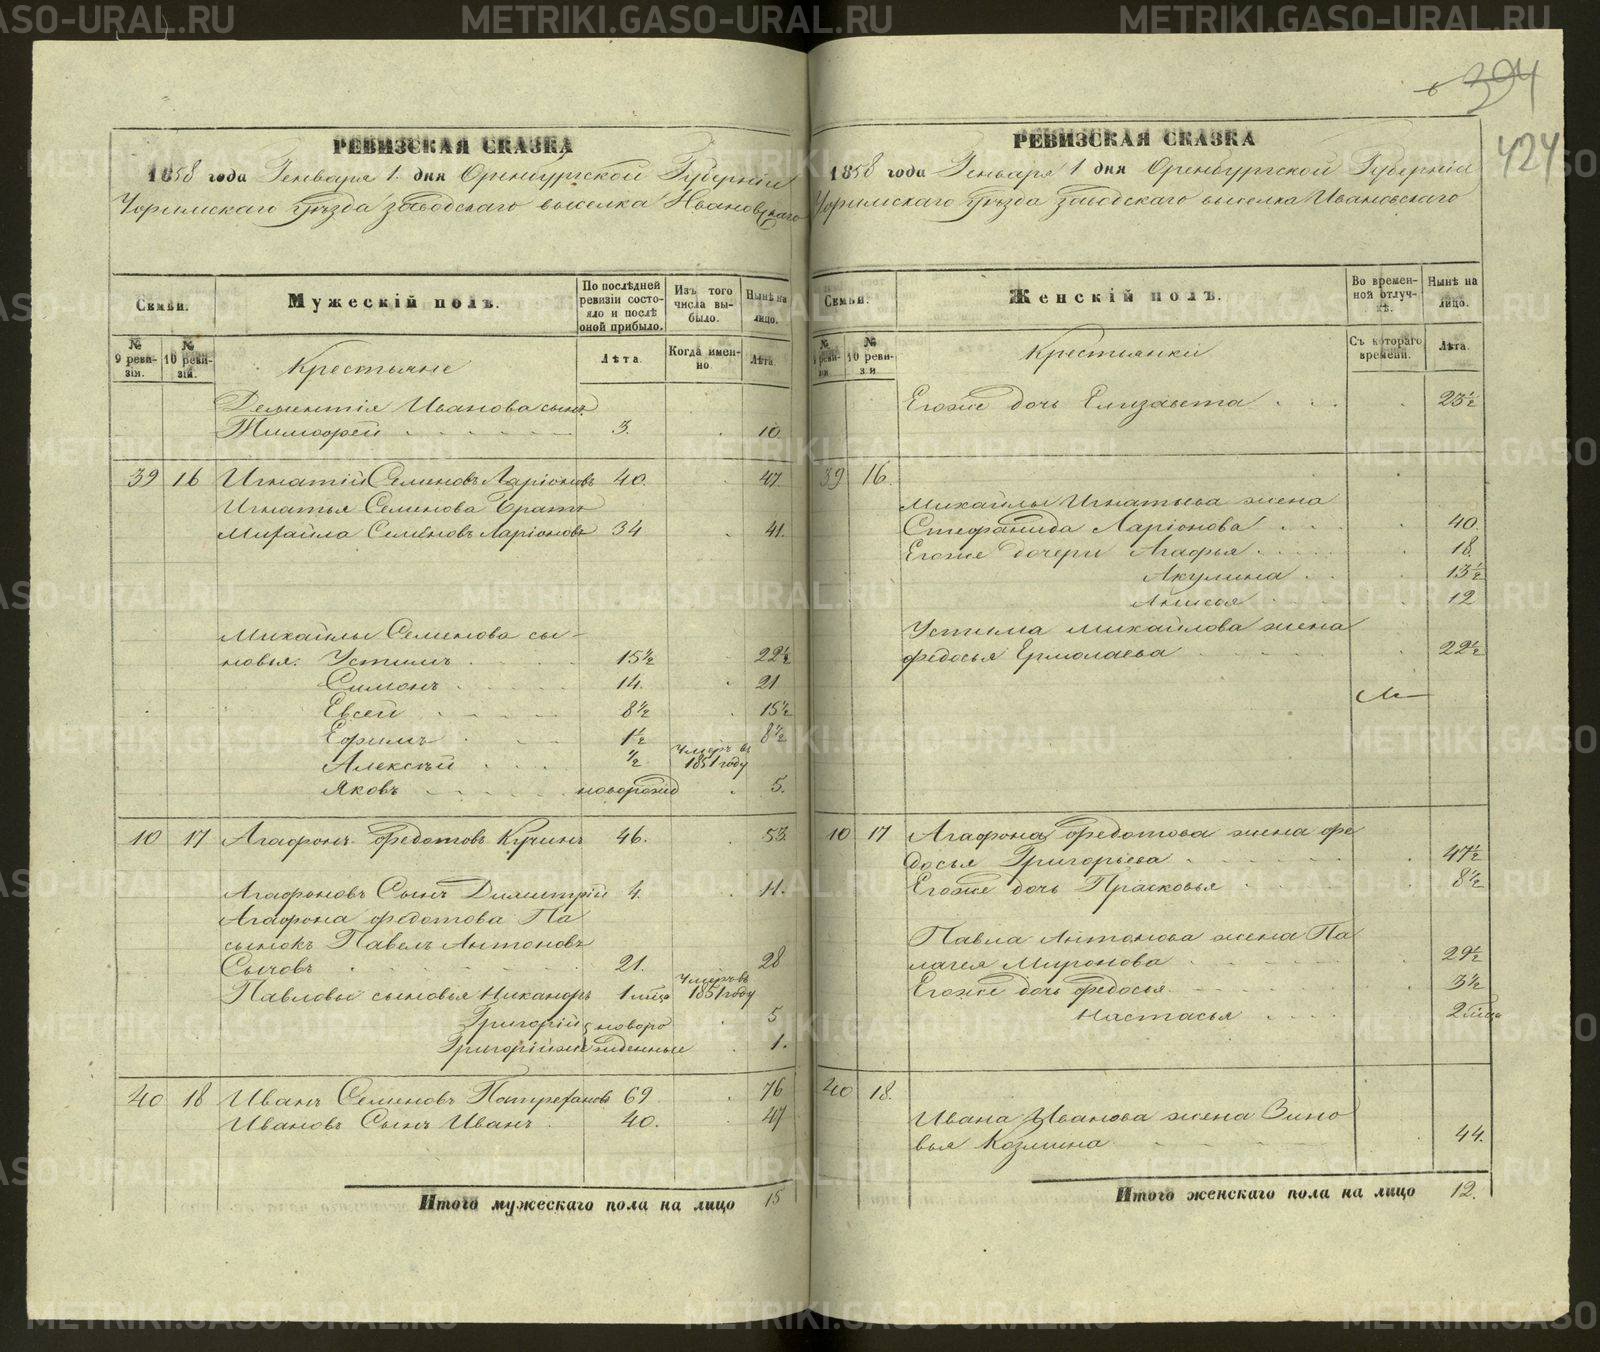 394
424
РЕВИЗСКАЯ СКАЗКА
1858 года Генваря 1. дня Оренбургской Губерніи
уѣзда заводскаго выселка Ивановскаго
Семьи.
Мужескій полъ.
По послѣдней ревизіи состояло и послѣ оной прибыло.
Изъ того числа выбыло.
Нынѣ на лицо.
№ 9 ревизіи.
№ 10 ревизіи.
Крестьяне
Лѣта.
Когда именно.
Лѣта.
Дементія Иванова сынъ
Тимофей 3. 10
39 16 Игнатій Семеновъ Ларіоновъ 40. 47
Игнатья Семенова братъ
Михайла Семеновъ Ларіоновъ 34 41.
Михайлы Семенова сы-
новья. Устимъ 15½ 22½
Симонъ 14. 21
Евсей 8½ 15½
Ефимъ 1½ 8½
Алексѣй ½ Умеръ въ 1851 году
Яковъ новорожд 5.
10 17 Агафонъ Федотовъ Кучинъ 46. 53
Агафоновъ Сынъ Димитрій 4. 11.
Агафона Федотова Па
сынокъ Павелъ Антоновъ
Сычовъ 21. 28
Павловы сыновья Никаноръ 1 мѣца Умеръ въ 1851 году
Григорій новоро 5
Григорій же жденные 1.
40 18 Иванъ Семеновъ 69 76
Ивановъ Сынъ Иванъ 40. 47
Итого мужескаго пола на лицо 15
РЕВИЗСКАЯ СКАЗКА
1858 года Генваря 1 дня Оренбургской Губерніи
уѣзда заводскаго выселка Ивановскаго
Семьи.
Женскій полъ.
Во временной отлучкѣ.
Нынѣ на лицо.
№ 9 ревизіи
№ 10 ревизіи
Крестьянки
Съ котораго времени.
Лѣта.
Егоже дочь Елизавета 23½
39 16.
Михайлы Игнатьева жена
Стефанида Ларіонова 40.
Егоже дочери Агафья 18.
Акулина 13½
Анисья 12
Устима Михайлова жена
Федосья Ермолаева 22½
10 17 Агафона Федотова жена Фе
досья Григорьева 47½
Егоже дочь Прасковья 8½
Павла Антонова жена Па
лагея Миронова 29½
Егоже дочь Федосья 3½
Настасья 2 мѣца
40 18.
Ивана Иванова жена Зино
вья Козмина 44.
Итого женскаго пола на лицо 12.
METRIKI.GASO-URAL.RU